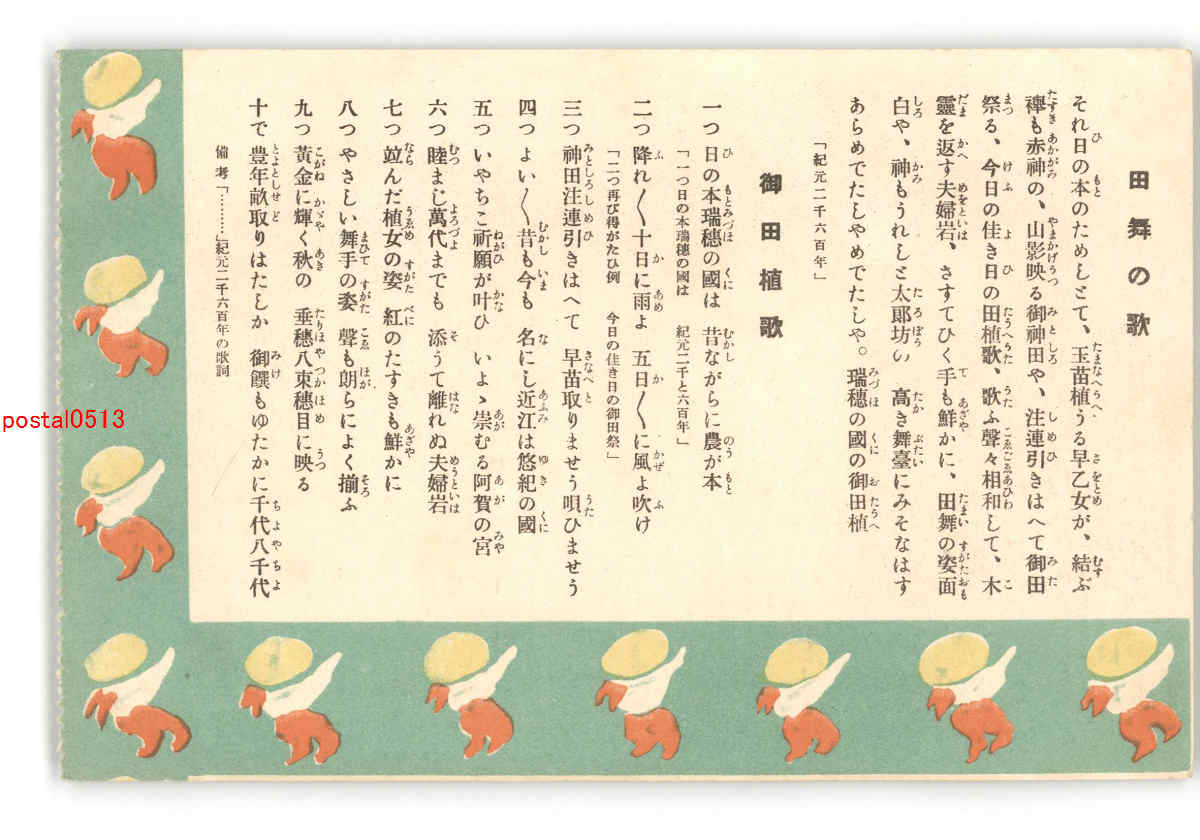 田舞の歌
それ日の本のためしとて、玉苗植うる早乙女が、結ぶ
襷も赤神の、山影映る御神田や、注連引きはへて御田
祭る、今日の佳き日の田植歌、歌ふ聲々相和して、木
靈を返す夫婦岩、さすてひく手も鮮かに、田舞の姿面
白や、神もうれしと太郎坊の 高き舞臺にみそなはす
あらめでたしやめでたしや。瑞穗の國の御田植
「紀元二千六百年」
御田植歌
一つ 日の本瑞穗の國は 昔ながらに農が本
「一つ日の本瑞穗の國は 紀元二千と六百年」
二つ 降れ〱十日に雨よ 五日〱に風よ吹け
「二つ再び得がたひ例 今日の佳き日の御田祭」
三つ 神田注連引きはへて 早苗取りませう唄ひませう
四つ よい〱昔も今も 名にし近江は悠紀の國
五つ いやちこ祈願が叶ひ いよゝ崇むる阿賀の宮
六つ 睦まじ萬代までも 添うて離れぬ夫婦岩
七つ 竝んだ植女の姿 紅のたすきも鮮かに
八つ やさしい舞手の姿 聲も朗らによく揃ふ
九つ 黃金に輝く秋の 垂穗八束穗目に映る
十で 豊年畝取りはたしか 御饌もゆたかに千代八千代
備考「………」紀元二千六百年の歌詞
postal0513